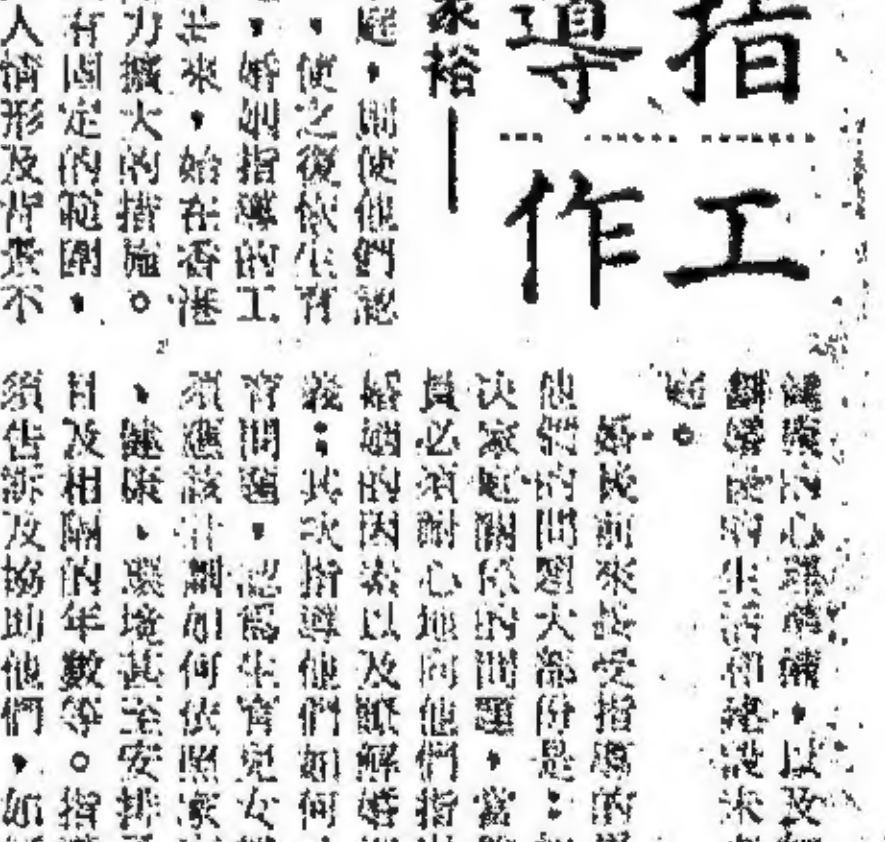 指導
工作
家裕——
庭，則使他們認
，使之復恢生育
，婚姻指導的工
來，始在香港
力擴大的措施。
有固定的範圍，
人情形及背景不
健康的心理準備，以及
庭。
婚後前來接受指導的
他們的問題大部份是：
決家庭關係的問題，當
員必須耐心地向他們指
婚姻的因素以及瞭解婚
義；其次指導他們如何
育問題，認為生育兒女
須應該計劃如何依照家
、健康、環境甚至安排
目及相隔的年數等。指
須告訴及協助他們，如